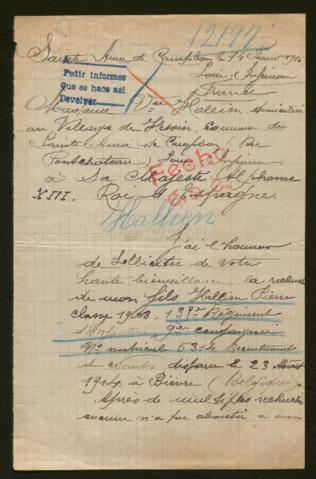 12197
Sainte Anne de Campbon le 14
Loire Inférieure
France
Pedir informes
Que se hace asi
Devolver
Madame Vve Hallien domiciliée
au Village de Commune de
Sainte Anne de Campbon (Par
Pontchateau) Loire Inférieure
à Sa Majesté Alphonse
XIII. Roi d'Espagne.
Fecho
Hallien
J'ai l'honneur
de Solliciter de votre
haute bienveillance la recherche
de mon fils Hallien Pierre
Classe 1913. 137e Régiment
d'Infanterie 9em compagnie
No matricule Recrutement
disparu le 23 Août
1914 à Bièvre (Belgique)
Après de recherches
aucune n'a pu aboutir à aucun